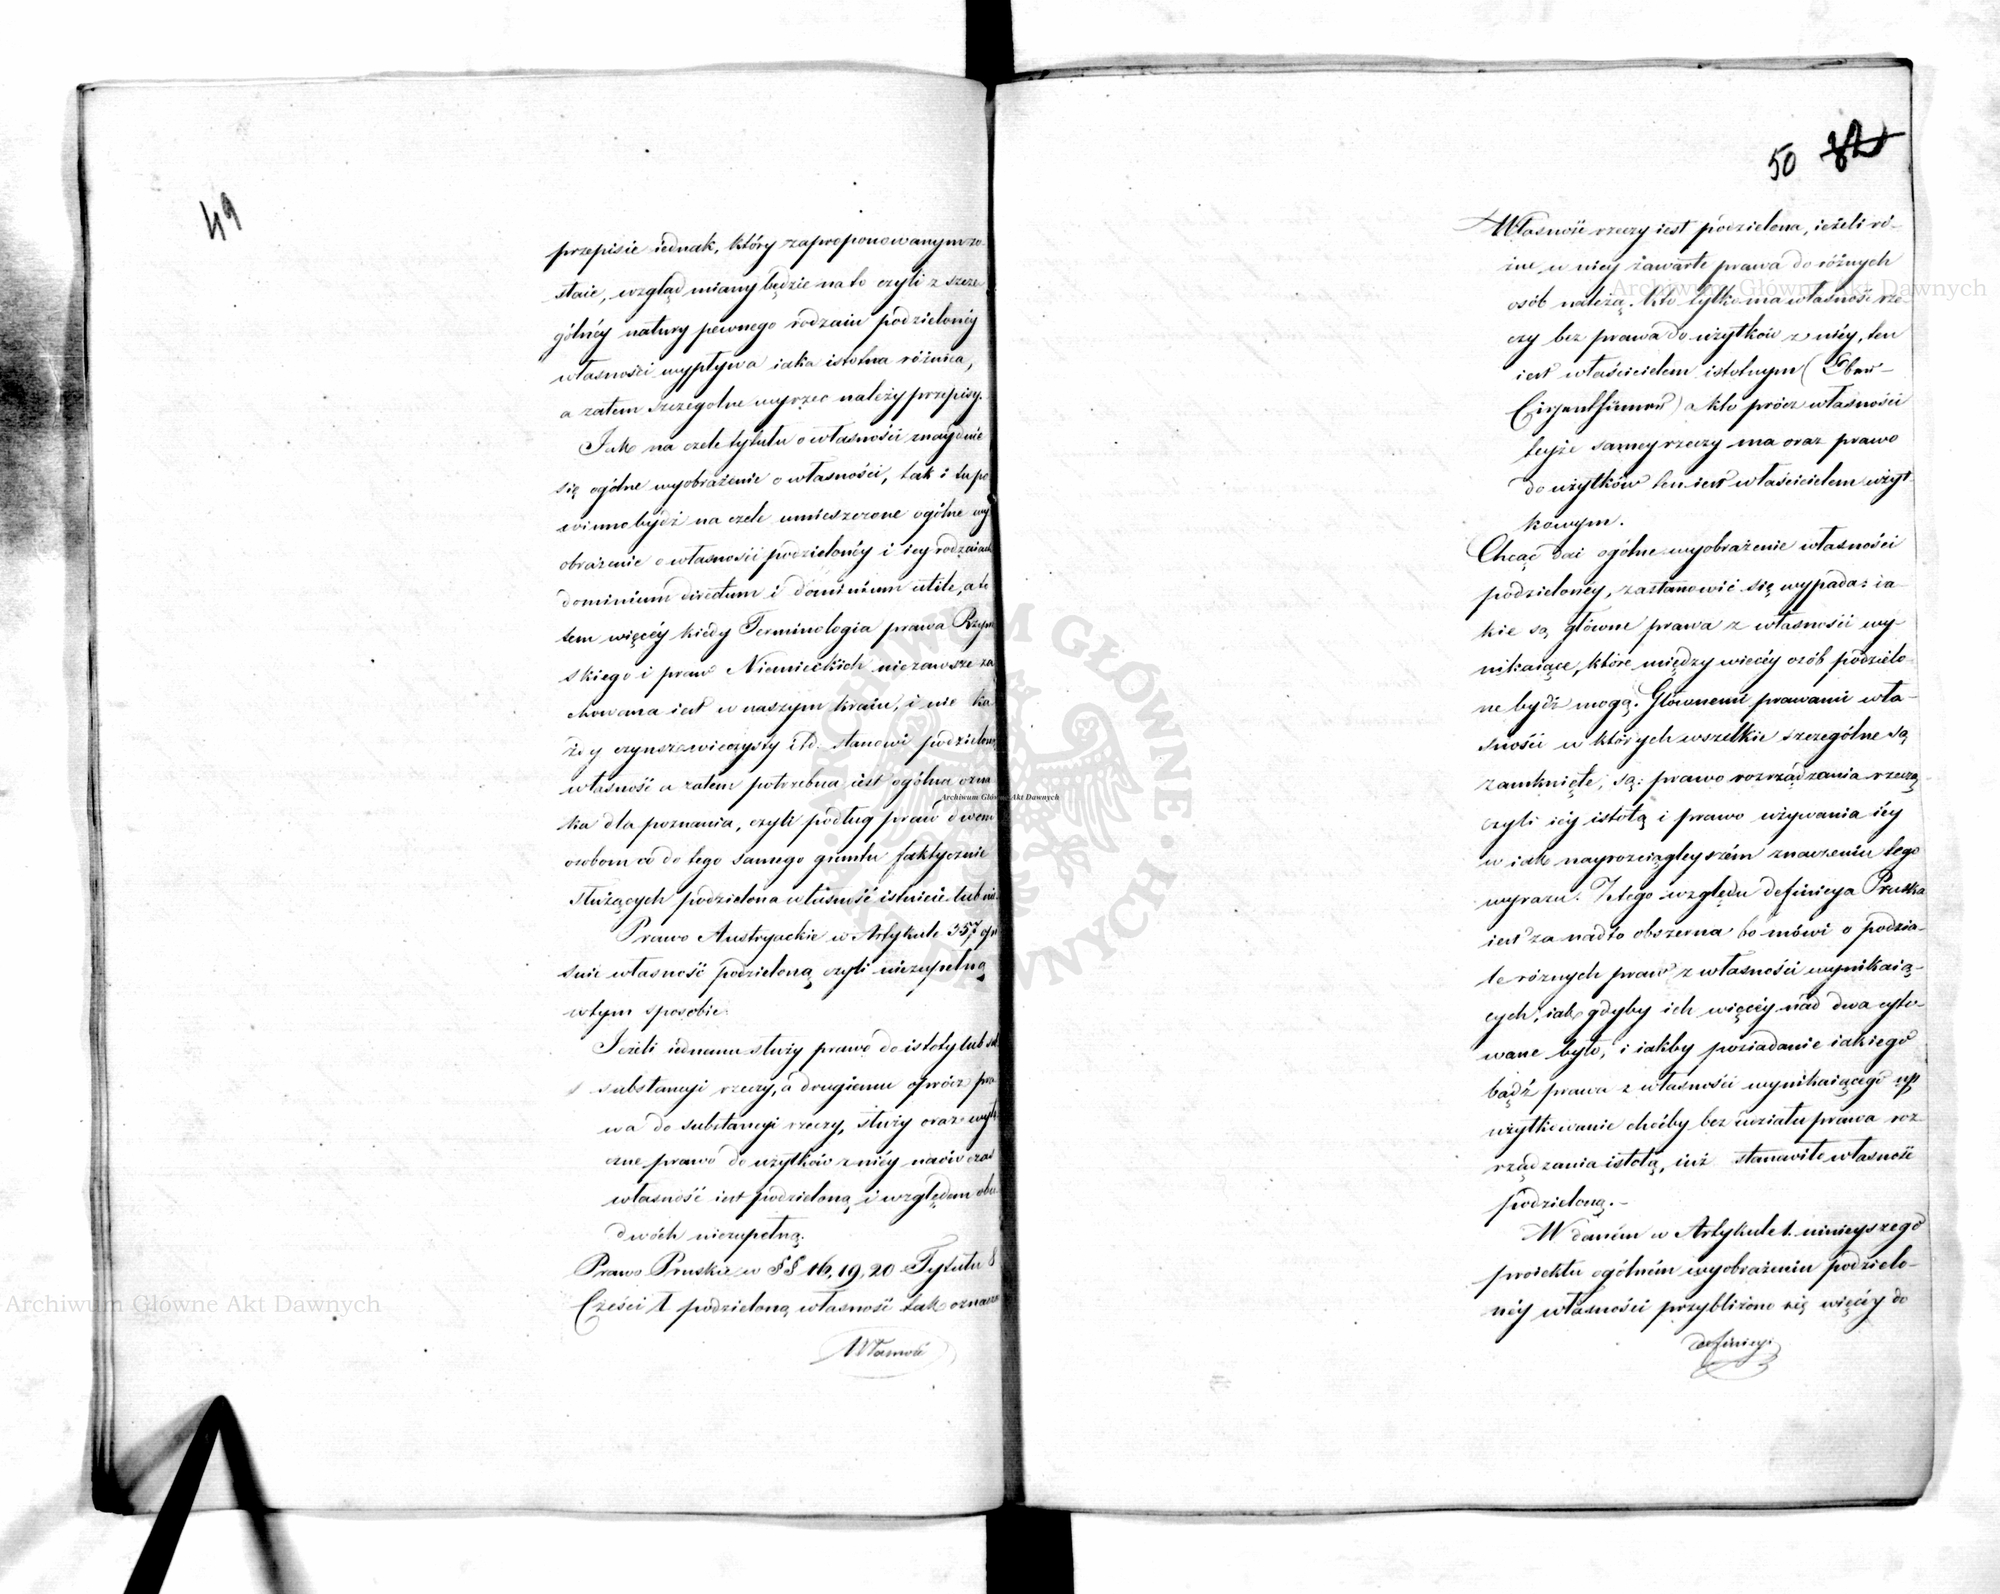 49
przepisie iednak, który zaproponowanym zo-
staie, wzgląd miany będzie na to czyli z szcze-
gólnéy natury pewnego rodzaiu podzielonéy
własności wypływa iaka istotna różnica,
a zatem szczególne wyrzec należy przepisy.
Jak na czele tytułu o własności znayduie
się ogólne wyobrażenie o własności, tak i tu po-
winno bydź na czele umieszczone ogólne wy-
obrażenie o własności podzielonéy i iey rodzaiach
dominium directum i dominium utile, a to
tem więcéy kiedy Terminologia prawa Rzym
skiego i praw Niemieckich nie zawsze za
chowana iest w naszym kraiu, i nie ka
żdy czynsz wieczysty itd. stanowi podzieloną
własność a zatem potrzebna iest ogólna ozna
ka dla poznania, czyli podług praw dwom
osobom co do tego samego gruntu faktycznie
służących podzielona własność istnieie lub nie.
Prawo Austryackie w Artykule 357 opi
suie własność podzieloną czyli niezupełną
w tym sposobie:
Jeżeli iednemu służy prawo do istoty lub
substancyi rzeczy, a drugiemu oprócz pra
wa do substancyi rzeczy, służy oraz wyłą
czne prawo do użytków z niéy naów czas
własność iest podzieloną i względem obu
dwóch niezupełną.
Prawo Pruskie w §§ 16, 19, 20 Tytułu 8
Części 1 podzieloną własność tak oznacza
Własność
50
Własność rzeczy iest podzielona, ieżeli ró-
żne w niey zawarte prawa do różnych
osób należą. Kto tylko ma własność rze
czy bez prawa do użytków z niéy, ten
iest właścicielem istotnym (Ober-
Eigenthümer) a kto prócz własności
teyże samey rzeczy ma oraz prawo
do użytków ten iest właścicielem użyt
kowym.
Chcąc dać ogólne wyobrażenie własności
podzielonéy, zastanowić się wypada: ia-
kie są główne prawa z własności wy-
nikaiące, które między więcéy osób podzielo-
ne bydź mogą. Głównemi prawami wła-
sności w których wszelkie szczególne są
zamknięte, są: prawo rozrządzania rzeczą
czyli iéy istotą i prawo używania iéy
w iak nayrozciągleyszém znaczeniu tego
wyrazu. Z tego względu definicya Pruska
iest za nadto obszerna bo mówi o podzia-
le różnych praw z własności wynikaią-
cych, iak gdyby ich więcéy nad dwa cyto-
wane było, i iakby posiadanie iakiego
bądź prawa z własności wynikaiącego np
użytkowanie choćby bez udziału prawa roz-
rządzania istotą, iuż stanowiło własność
podzieloną.-
W daném w Artykule 1. ninieyszego
proiektu ogólném wyobrażeniu podzielo-
néy własności przybliżono się więcéy do
definicyi
Archiwum Główne Akt Dawnych
Archiwum Główne Akt Dawnych
Archiwum Główne Akt Dawnych
ARCHIWUM GŁÓWNE · AKT DAWNYCH ·